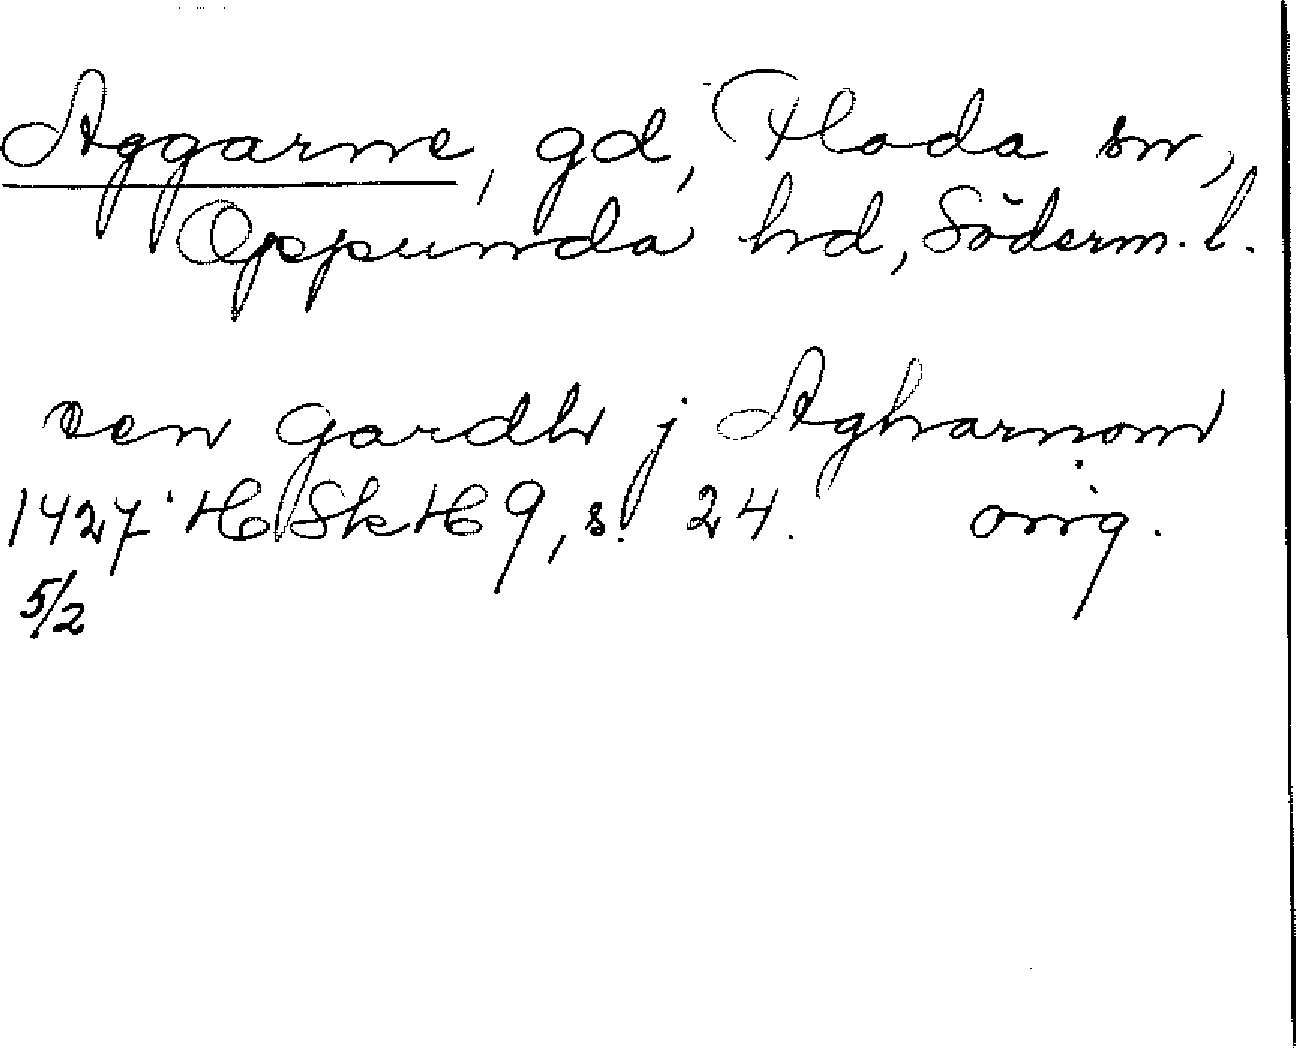 Aggarne, gd, Floda sn,
Oppunda hd, Söderm. l.
een gardh j Agharnom
1427 HSkH 9, s. 24. orig.
5/2